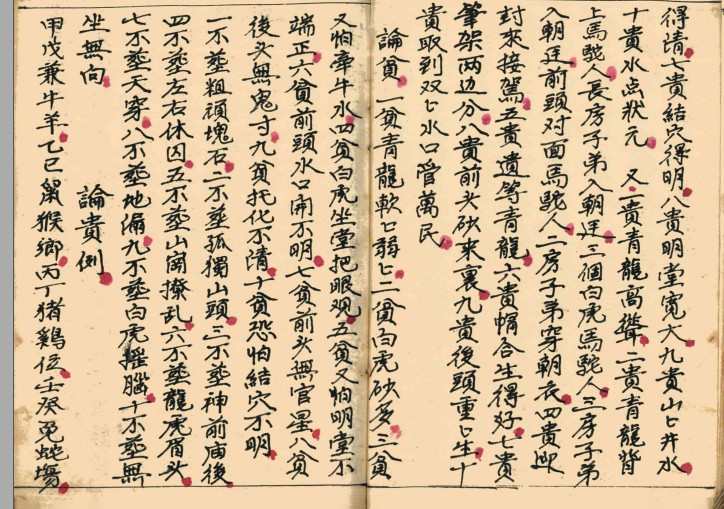 得清七貴結穴得明八貴明堂寬大九貴山〻井水
十貴水点狀元　又一貴青龍高聳二貴青龍背
上馬駝人長房子弟入朝廷三個白虎馬駝人三房子弟
入朝廷前頭对面馬駝人二房子弟穿朝衣四貴迎
封來接駕五貴遺等青龍六貴帽合生得好七貴
筆架两边分八貴前头砂來裏九貴後頭重〻生十
貴取到双〻水口管萬民
論貧　一貧青龍軟〻弱〻二貧白虎砂多三貧
又怕牽牛水四貧白虎坐堂把眼观五貧又怕明堂不
端正六貧前頭水口開不明七貧前头無官星八貧
後头無鬼寸九貧托化不清十貧恐怕結穴不明
一不塟粗頑塊石二不塟孤獨山頭三不塟神前庙後
四不塟左右休囚五不塟山崗撩乱六不塟龍虎眉头
七不塟天穿八不塟地漏九不塟白虎搖腦十不塟無
坐無向　　論貴例
甲戊兼牛羊乙巳鼠猴鄉丙丁猪鷄位壬癸兔蛇塲